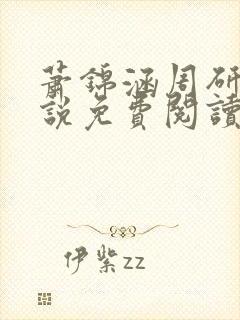 蕭錦涵周研
說免費閱讀
伊紫zz